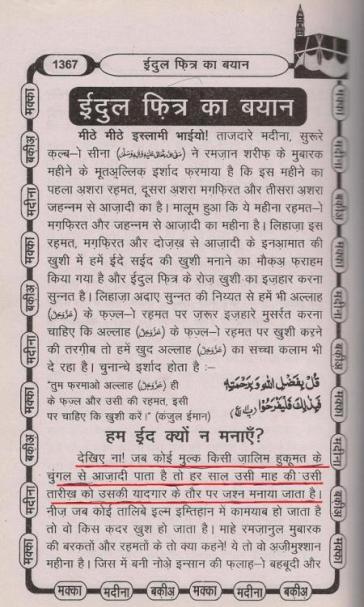 1367
ईदुल फ़ित्र का बयान
ईदुल फ़ित्र का बयान
मीठे मीठे इस्लामी भाईयो! ताजदारे मदीना, सुरूरे
क़ल्ब-ो सीना (ﷺ) ने रमज़ान शरीफ़ के मुबारक
महीने के मुतअ़ल्लिक़ इर्शाद फ़रमाया है कि इस महीने का
पहला अशरा रहमत, दूसरा अशरा मग़फ़िरत और तीसरा अशरा
जहन्नम से आज़ादी का है। मालूम हुआ कि ये महीना रहमत-ो
मग़फ़िरत और जहन्नम से आज़ादी का महीना है। लिहाज़ा इस
रहमत, मग़फ़िरत और दोज़ख़ से आज़ादी के इनआ़मात की
खुशी में हमें ईदे सईद की खुशी मनाने का मौक़अ़ फ़राहम
किया गया है और ईदुल फ़ित्र के रोज़ खुशी का इज़हार करना
सुन्नत है। लिहाज़ा अदाए सुन्नत की निय्यत से हमें भी अल्लाह
(عزوجل) के फ़ज़्ल-ो रहमत पर ज़रूर इज़हारे मुसर्रत करना
चाहिए कि अल्लाह (عزوجل) के फ़ज़्ल-ो रहमत पर खुशी करने
की तरग़ीब तो हमें खुद अल्लाह (عزوجل) का सच्चा कलाम भी
दे रहा है। चुनान्चे इर्शाद होता है :–
"तुम फ़रमाओ अल्लाह (عزوجل) ही
के फ़ज़्ल और उसी की रहमत, इसी
पर चाहिए कि खुशी करें।" (कंज़ुल ईमान)
قُلْ بِفَضْلِ اللّٰهِ وَبِرَحْمَتِهٖ
فَبِذٰلِكَ فَلْيَفْرَحُوْا
हम ईद क्यों न मनाएँ?
देखिए ना! जब कोई मुल्क किसी ज़ालिम हुकूमत के
चुंगल से आज़ादी पाता है तो हर साल उसी माह की उसी
तारीख़ को उसकी यादगार के तौर पर जश्न मनाया जाता है।
नीज़ जब कोई तालिबे इल्म इम्तिहान में कामयाब हो जाता है
तो वो किस कदर खुश हो जाता है। माहे रमज़ानुल मुबारक
की बरकतों और रहमतों के तो क्या कहने! ये तो वो अज़ीमुश्शान
महीना है। जिस में बनी नोअ़े इन्सान की फ़लाह-ो बहबूदी और
मक्का मदीना बक़ीअ़ मक्का मदीना बक़ीअ़
मक्का
बक़ीअ़
मदीना
मक्का
बक़ीअ़
मदीना
मक्का
बक़ीअ़
मदीना
मक्का
मक्का
मदीना
बक़ीअ़
मक्का
मदीना
बक़ीअ़
मक्का
मदीना
बक़ीअ़
मक्का